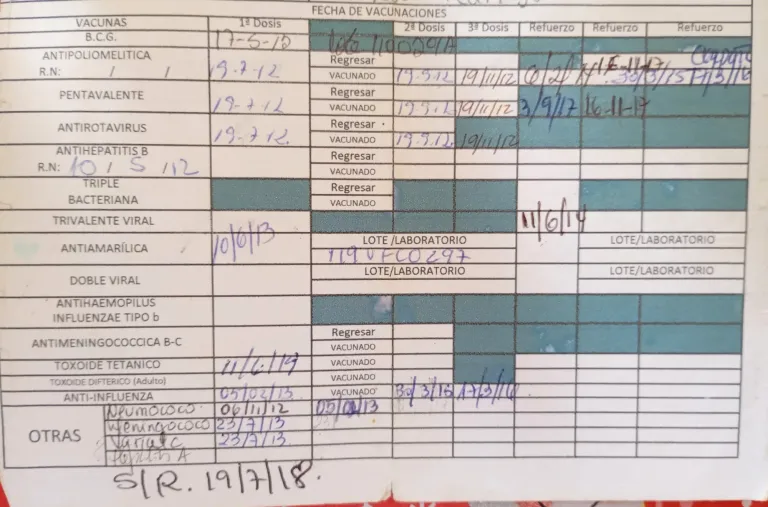 FECHA DE VACUNACIONES
VACUNAS 1ª Dosis 2ª Dosis 3ª Dosis Refuerzo Refuerzo Refuerzo
B.C.G. 17-5-12 110029A
ANTIPOLIOMELITICA Regresar
R.N: / / 19-7-12 VACUNADO 19.9.12 19/11/12
PENTAVALENTE Regresar
19-7-12 VACUNADO 19.9.12 19/11/12 3/9/17 16-11-17
ANTIROTAVIRUS Regresar
19-7-12 VACUNADO 19.9.12 19/11/12
ANTIHEPATITIS B Regresar
R.N: 10 / 5 / 12 VACUNADO
TRIPLE Regresar
BACTERIANA VACUNADO
TRIVALENTE VIRAL 11/6/14
ANTIAMARÍLICA 10/6/13 LOTE /LABORATORIO LOTE/LABORATORIO
119VFC0297
DOBLE VIRAL LOTE/LABORATORIO LOTE/LABORATORIO
ANTIHAEMOPILUS
INFLUENZAE TIPO b
ANTIMENINGOCOCCICA B-C Regresar
VACUNADO
TOXOIDE TETANICO 11/6/14 VACUNADO
TOXOIDE DIFTERICO (Adulto) VACUNADO
ANTI-INFLUENZA 05/02/13 VACUNADO 30/3/15 17/3/16
OTRAS
Neumococo 06/11/12
Meningococo 23/7/13
23/7/13
S/R. 19/7/18.